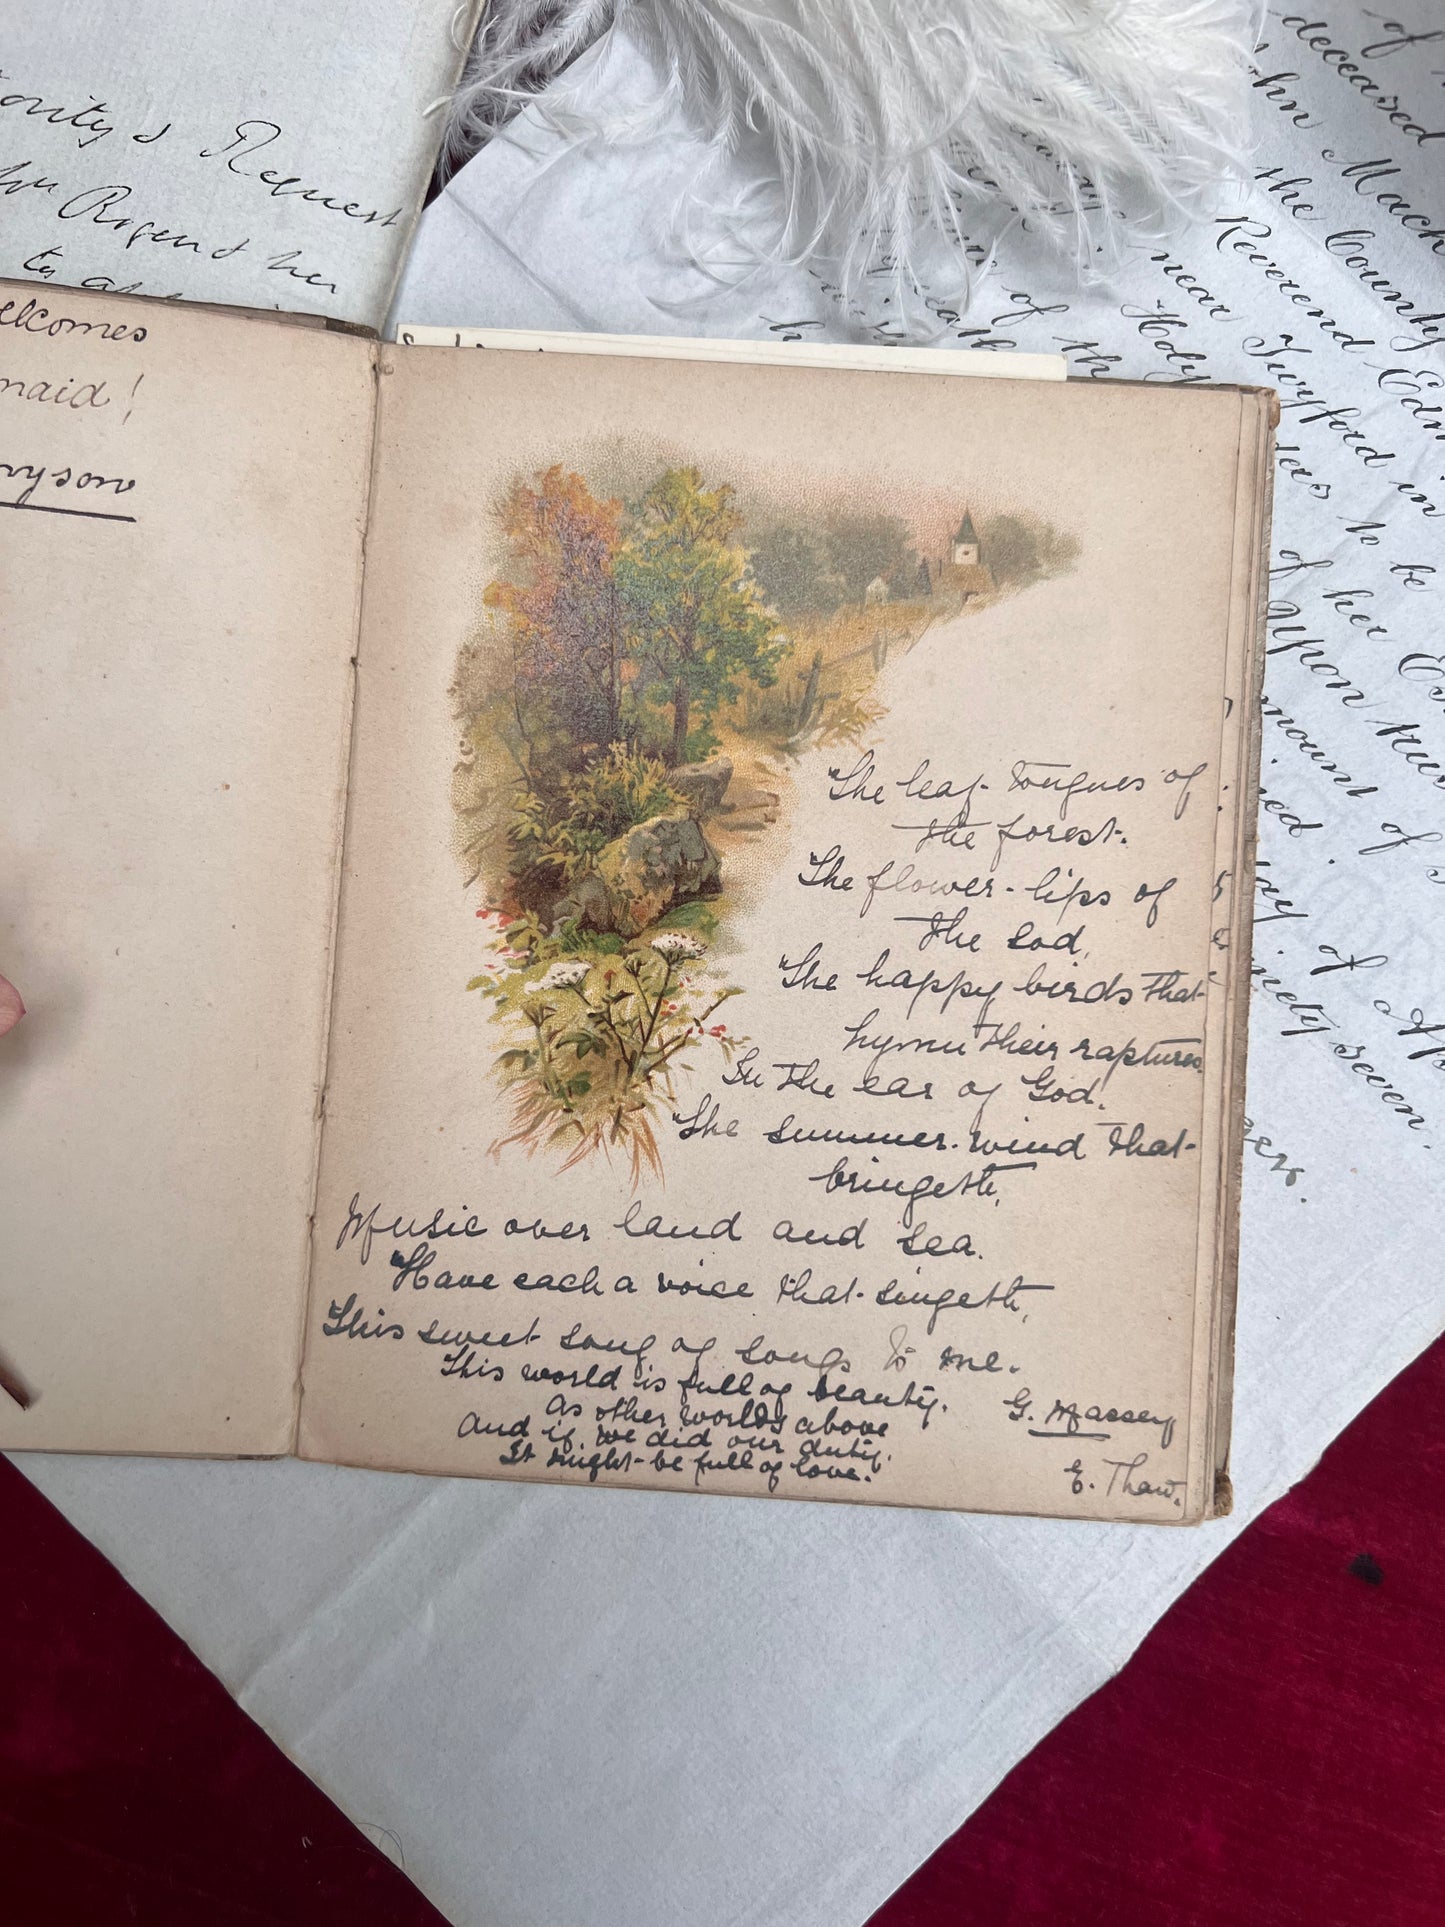 ority & Request
to
elcomes
maid!
nyson
"The leaf-tongues of
the forest.
"The flower-lips of
the sod,
"The happy birds that
hymn their raptures
In the ear of God.
"The summer-wind that
bringeth,
Music over land and sea.
"Have each a voice that singeth,
This sweet song of songs to me.
This world is full of beauty.
As other worlds above
And if we did our duty.
It might be full of love.
G. Massey
E. Thaw.
of
deceased
John Mack
the County
Reverend Edm
near Twyford in
Holy
of
to be
of her
Upon
mount of
day of Ap
ninety seven.